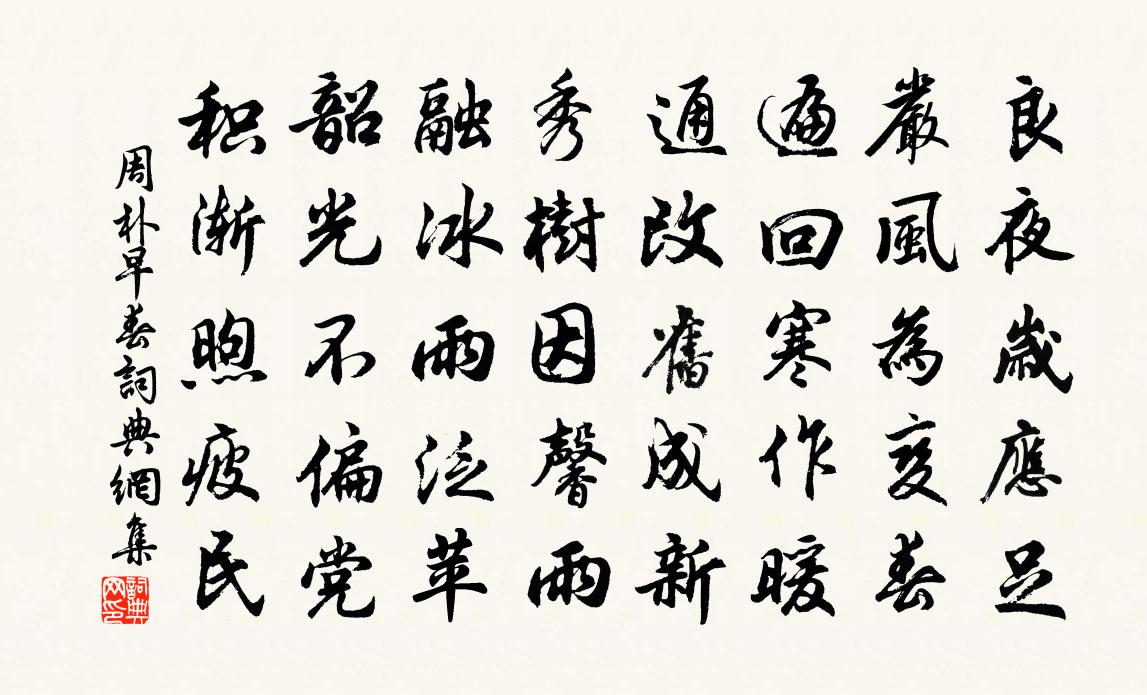 良夜歲應足
嚴風為變春
遍回寒作暖
通改舊成新
秀樹因馨雨
融冰雨泛苹
韶光不偏党
积漸煦疲民
周朴早春詞典網集
詞典网印